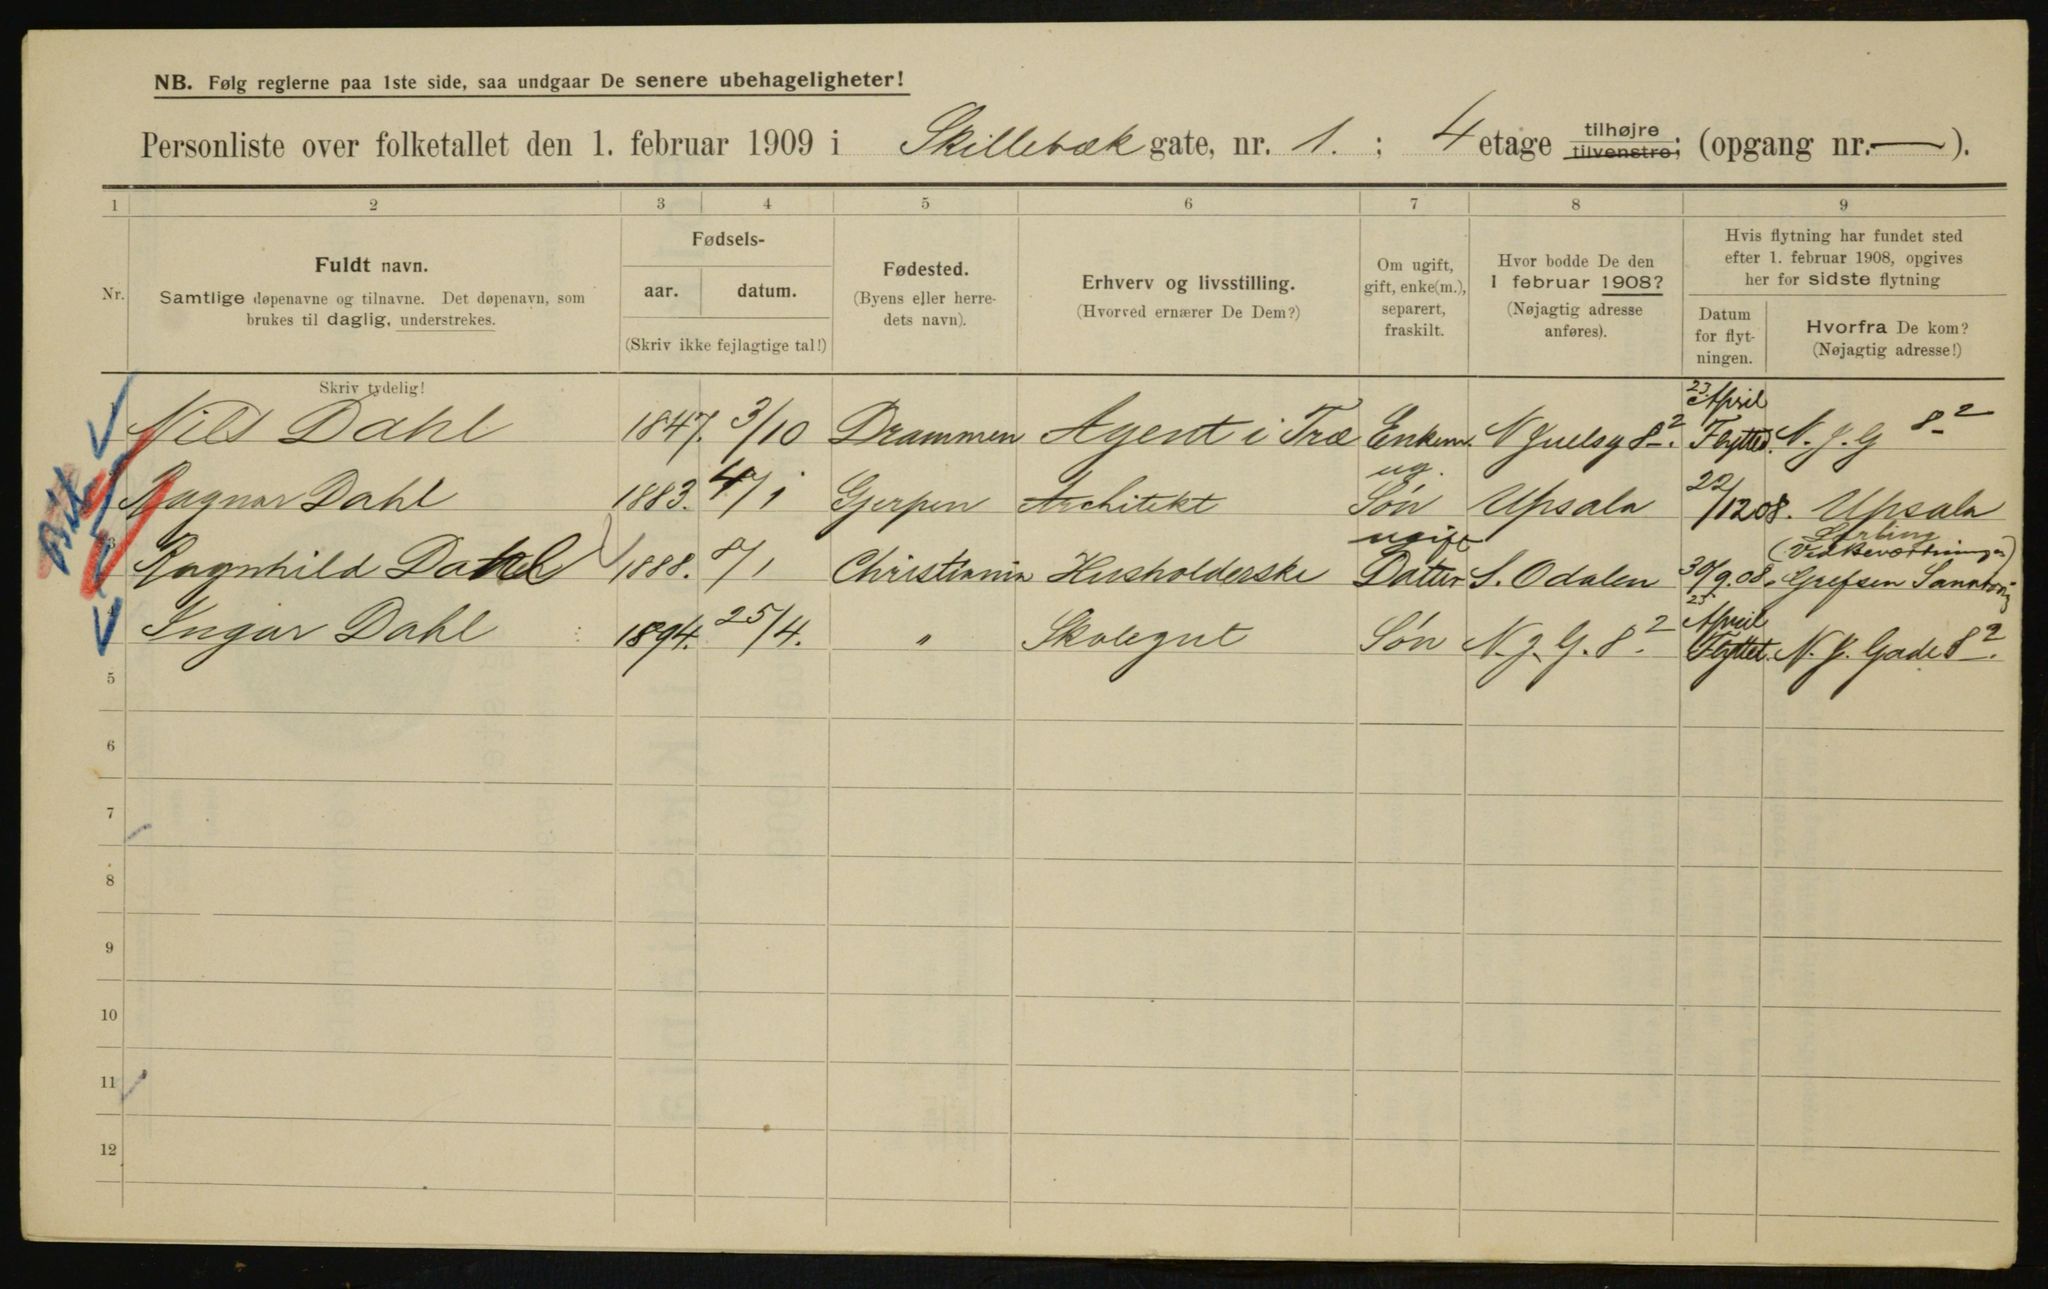 NB. Følg reglerne paa 1ste side, saa undgaar De senere ubehageligheter!
Personliste over folketallet den 1. februar 1909 i Skillebæk gate, nr. 1. ; 4 etage tilhøjre tilvenstre; (opgang nr. — ).
1 2 3 4 5 6 7 8 9
Nr.
Fuldt navn.
Samtlige døpenavne og tilnavne. Det døpenavn, som
brukes til daglig, understrekes.
Fødsels-
aar. datum.
(Skriv ikke fejlagtige tal!)
Fødested.
(Byens eller herre-
dets navn).
Erhverv og livsstilling.
(Hvorved ernærer De Dem?)
Om ugift,
gift, enke(m.),
separert,
fraskilt.
Hvor bodde De den
1 februar 1908?
(Nøjagtig adresse
anføres).
Hvis flytning har fundet sted
efter 1. februar 1908, opgives
her for sidste flytning
Datum
for flyt-
ningen.
Hvorfra De kom?
(Nøjagtig adresse!)
Skriv tydelig!
Nils Dahl 1847. 3/10 Drammen Agent i Træ Enkem. N Juelsg 8-2. 23 April Flyttet. N. J. G 8-2
Ragnar Dahl 1883. 4/1 Gjerpen Architekt ug. Søn Upsala 22/12 08. Upsala
3 Ragnhild Dahl 1888. 8/1 Christiania Husholderske ugift Datter S. Odalen 30/9.08. Grefsen
4 Ingar Dahl 1894. 25/4. " Skolegut Søn N. J. G. 8-2. 23 April Flyttet. N. J. Gade 8-2.
5
6
7
8
9
10
11
12